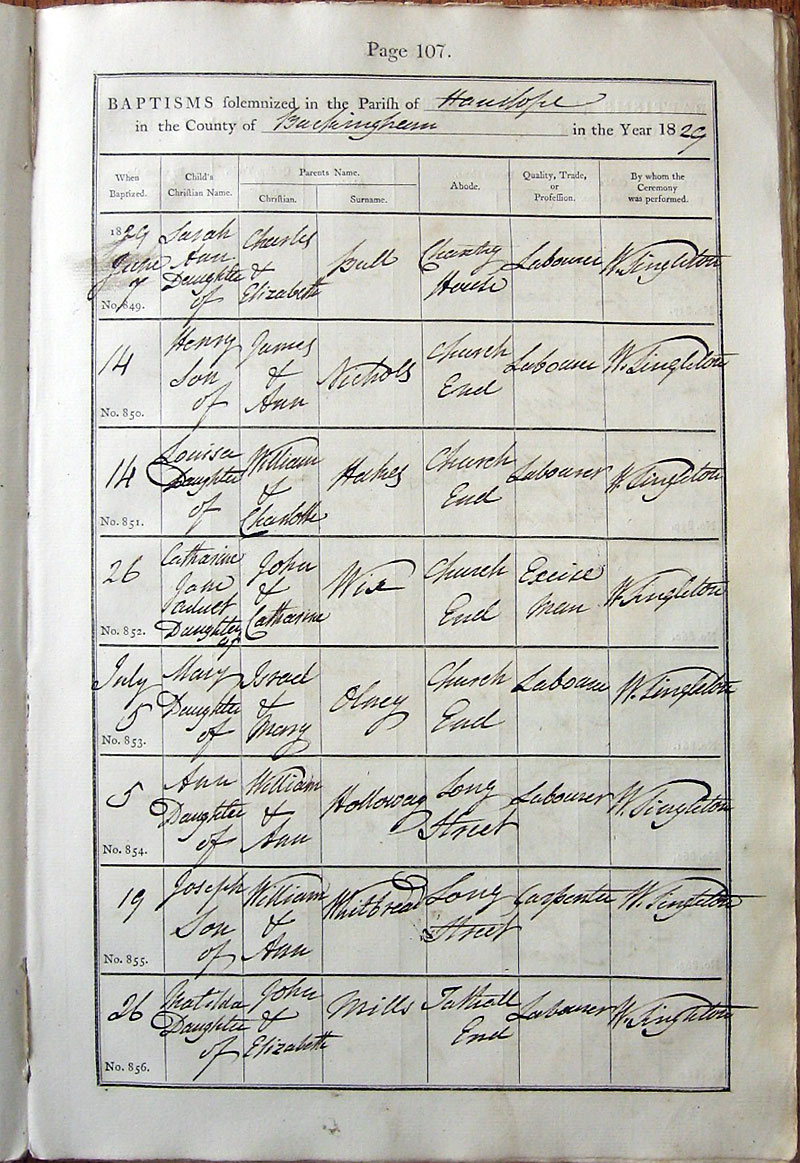 Page 107.
BAPTISMS solemnized in the Parish of Hanslope
in the County of Buckingham in the Year 1829
When Baptized.
Child's Christian Name.
Parents Name.
Christian.
Surname.
Abode.
Quality, Trade, or Profession.
By whom the Ceremony was performed.
1829
June
7
No. 849.
Sarah
Ann
Daughter
of
Charles
&
Elizabeth
Bull
Chantry
House
Labourer
W. Singleton
14
No. 850.
Henry
Son
of
James
&
Ann
Nichols
Church
End
Labourer
W. Singleton
14
No. 851.
Louisa
Daughter
of
William
&
Charlotte
Church
End
Labourer
W. Singleton
26
No. 852.
Catharine
Jane
Daughter
of
John
&
Catharine
Wix
Church
End
Excise
man
W. Singleton
July
5
No. 853.
Mary
Daughter
of
Israel
&
Mary
Olney
Church
End
Labourer
W. Singleton
5
No. 854.
Ann
Daughter
of
William
&
Ann
Holloway
Long
Street
Labourer
W. Singleton
19
No. 855.
Joseph
Son
of
William
&
Ann
Whitbread
Long
Street
Carpenter
W. Singleton
26
No. 856.
Matilda
Daughter
of
John
&
Elizabeth
Mills
Tathall
End
Labourer
W. Singleton